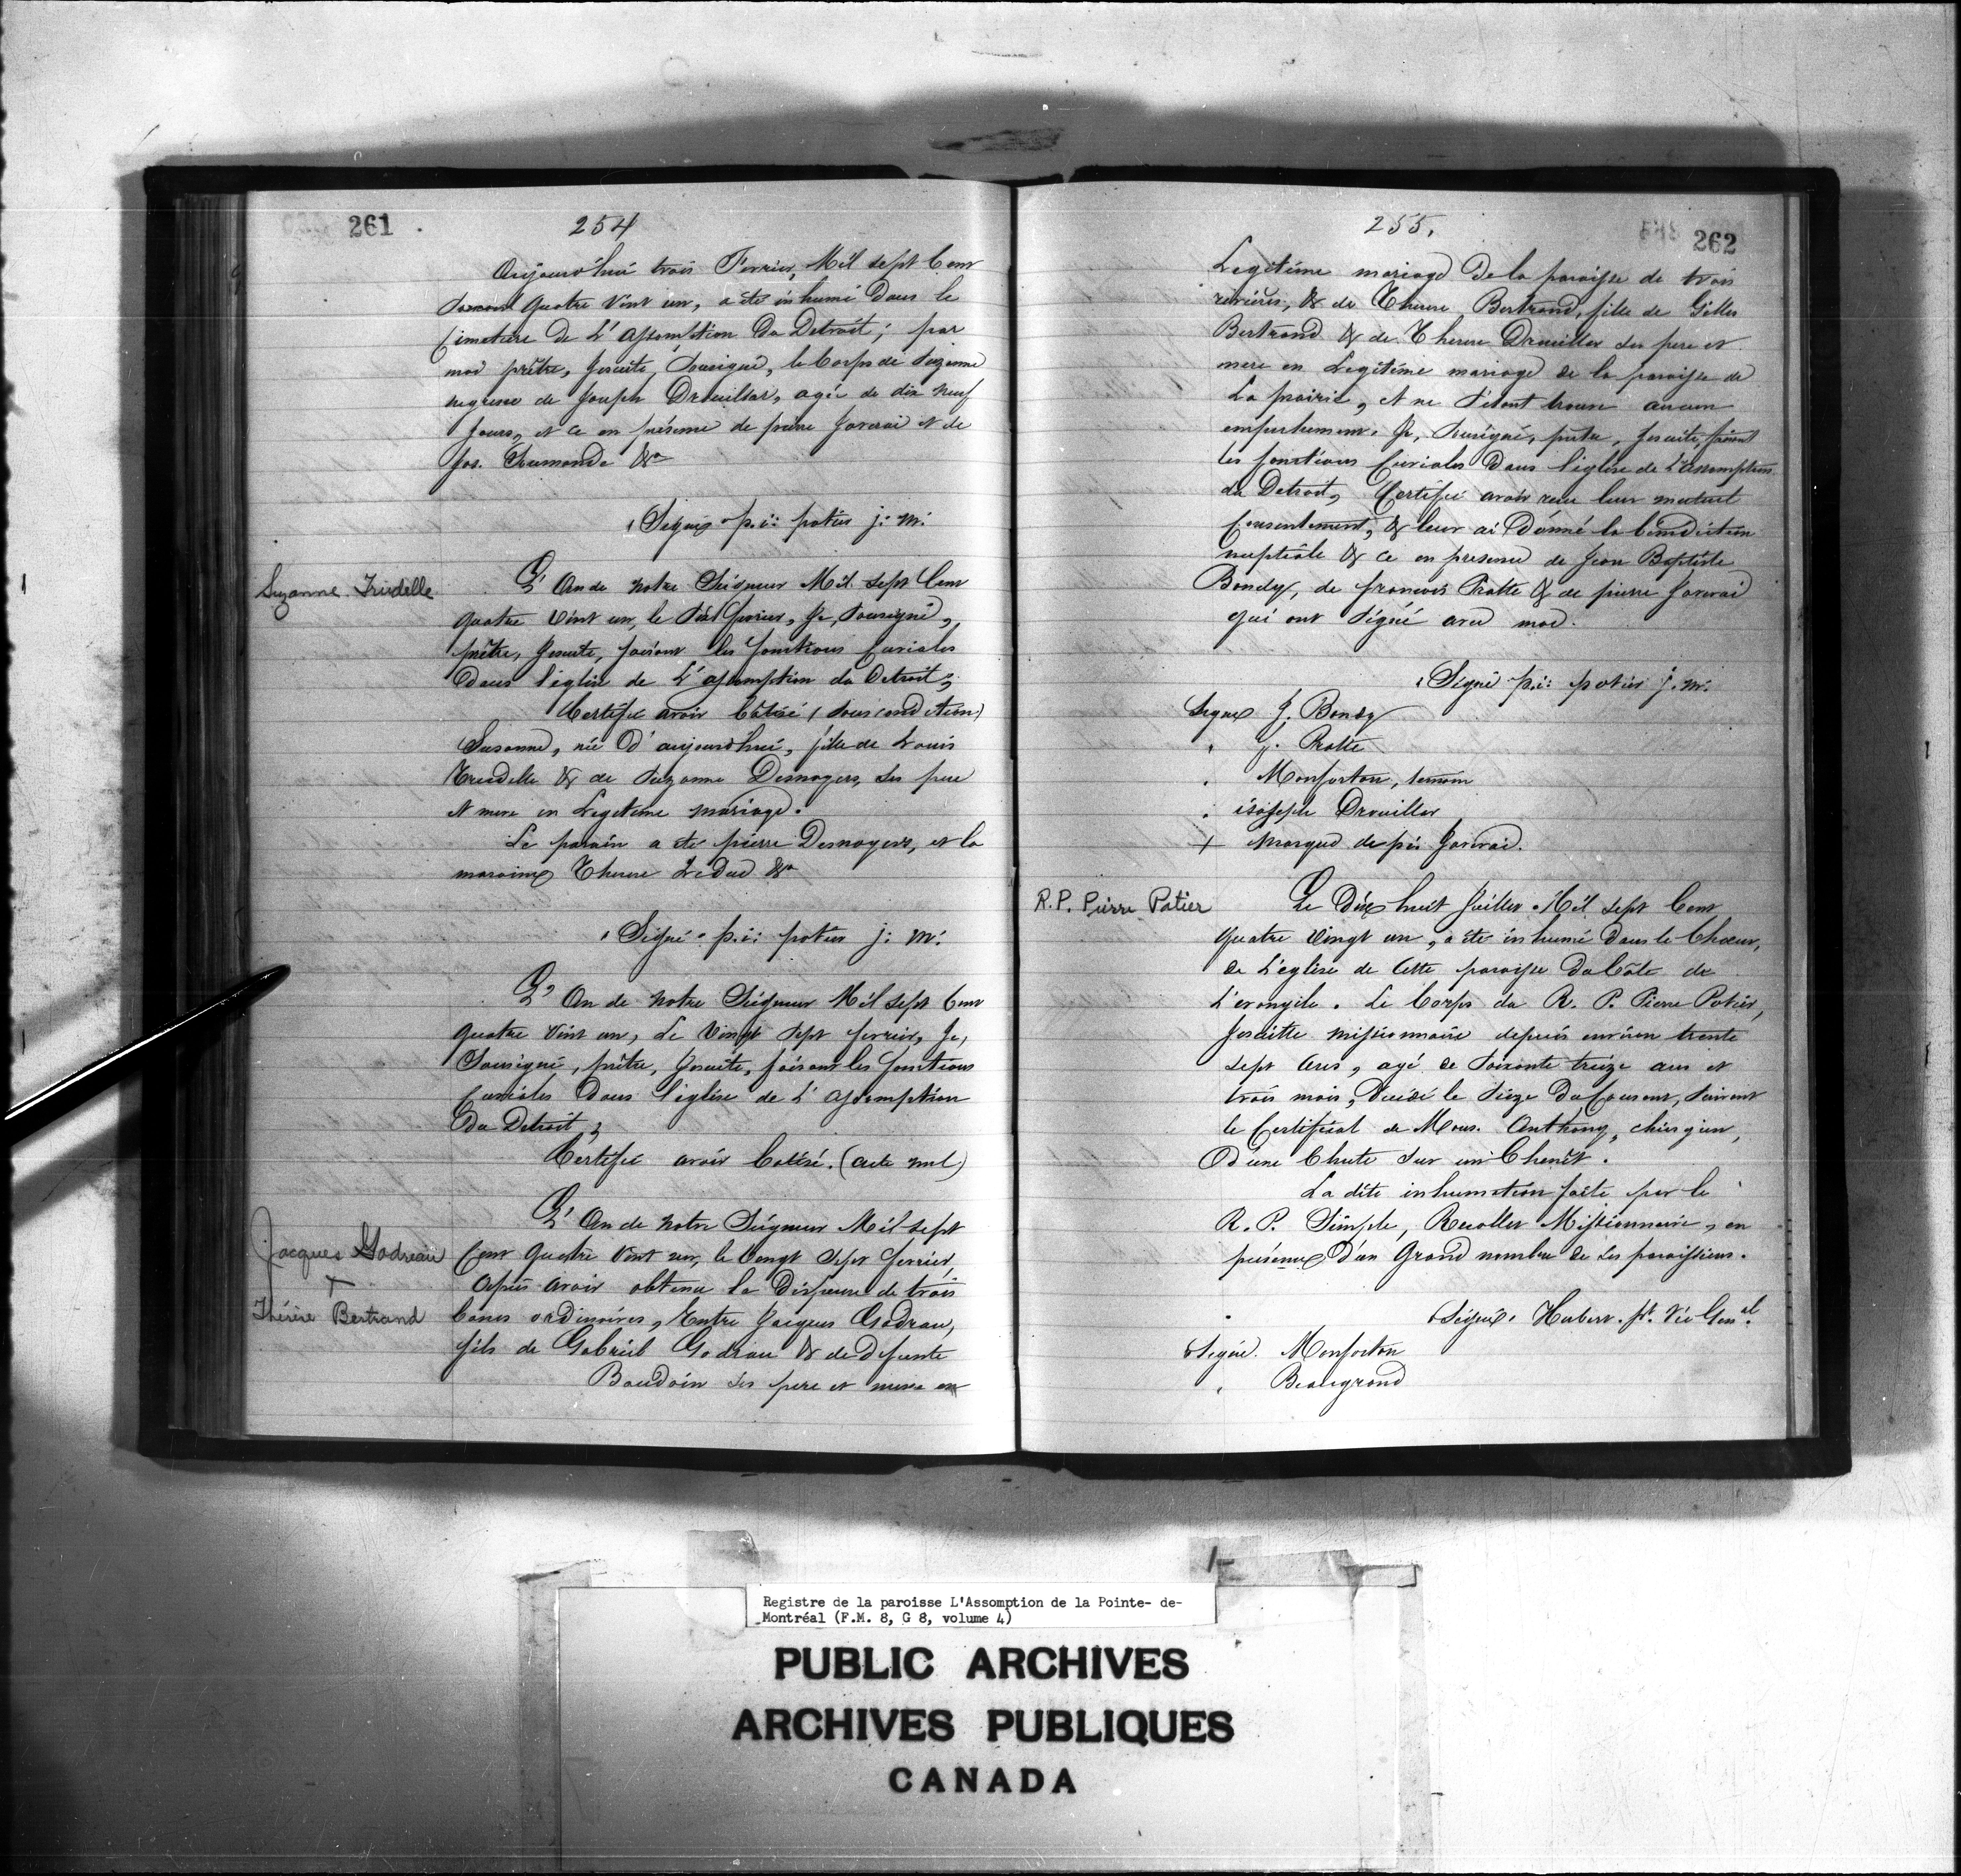 261
254
Aujourd'hui trois Fevrier, Mil Sept Cent
quatre vint un, a été inhumé dans le
Cimetiere de L'assomption du Detroit; par
moi prêtre, Jesuite, Sousigné, le Corps de Suzanne
negresse de Joseph Drouillar, agée de dix neuf
jours, et ce en présence de pierre Javerai et de
Jos. Dumonde &a
(Signé) p.i: potier j: m:
Suzanne Trudelle
L'An de notre Seigneur Mil Sept Cent
quatre vint un, le Sixt fevrier, Je, Sousigné,
prêtre, Jesuite, faisant les fonctions Curiales
dans l'église de L'assomption du Detroit,
Certifie avoir batisé (sous condition)
Susanne, née d'aujourd'hui, fille de Louis
Trudelle & de Suzanne Desnoyers, ses pere
et mere en Legitime mariage.
Le parain a été pierre Desnoyers, et la
maraine Therese Leduc &a
"Signé" p.i: potier j: m:
L'An de notre Seigneur Mil Sept Cent
quatre vint un, Le vingt Sept fevrier, Je,
Sousigné, prêtre, Jesuite, faisant les fonctions
Curiales dans l'église de L'assomption
du Detroit,
Certifie avoir batisé. (acte nul)
Jacques Godreau
+
Thérèse Bertrand
L'An de notre Seigneur Mil Sept
Cent quatre vint un, le vingt Sept fevrier,
après avoir obtenu la Dispense de trois
bancs ordinaires, Entre Jacques Godrau,
fils de Gabriel Godrau & de defunte
Baudoin ses pere et mere en
255.
262
Legitime mariage de la paroisse de trois
rivières, & de Therese Bertrand, fille de Gilles
Bertrand & de Therese Drouiller ses pere et
mere en Legitime mariage de la paroisse de
La prairie, et ne S'étant trouvé aucun
empechement. Je, Sousigné, prêtre, Jesuite, faisant
les fonctions Curiales dans l'église de L'assomption
du Detroit, Certifie avoir recu leur mutuel
Consentement, & leur ai Donné la bénédiction
nuptiale & ce en presence de Jean Baptiste
Bondy, de francois Pratte & de pierre Javerai
qui ont Signé avec moi.
"Signé p.i: potier j. m:
Signé J. Bondy
" f. Pratte
" Monforton, temoin
" isoseph Drouiller
+ marque de pi: Javerai.
R.P. Pierre Potier
Le Dix huit Juillet Mil Sept Cent
quatre vingt un, a été inhumé dans le Chœur,
de L'eglise de Cette paroisse du Côté de
L'evangile. Le Corps du R. P. Pierre Potier,
Jesuitte missionnaire depuis environ trente
Sept ans, agé de Soixante treize ans et
trois mois, decedé le Seize du Courant, Suivant
le Certificat de Mons. Anthony, chirurgien,
D'une Chute Sur un Chenêt.
La dite inhumation faite par le
R. P. Simple, Recollet Missionnaire, en
présence D'un Grand nombre de Ses paroissiens.
(Signé) Hubert. pt. Vic Genal.
(Signé. Monforton
" Beaugrand
Registre de la paroisse L'Assomption de la Pointe- de-
Montréal (F.M. 8, G 8, volume 4)
PUBLIC ARCHIVES
ARCHIVES PUBLIQUES
CANADA